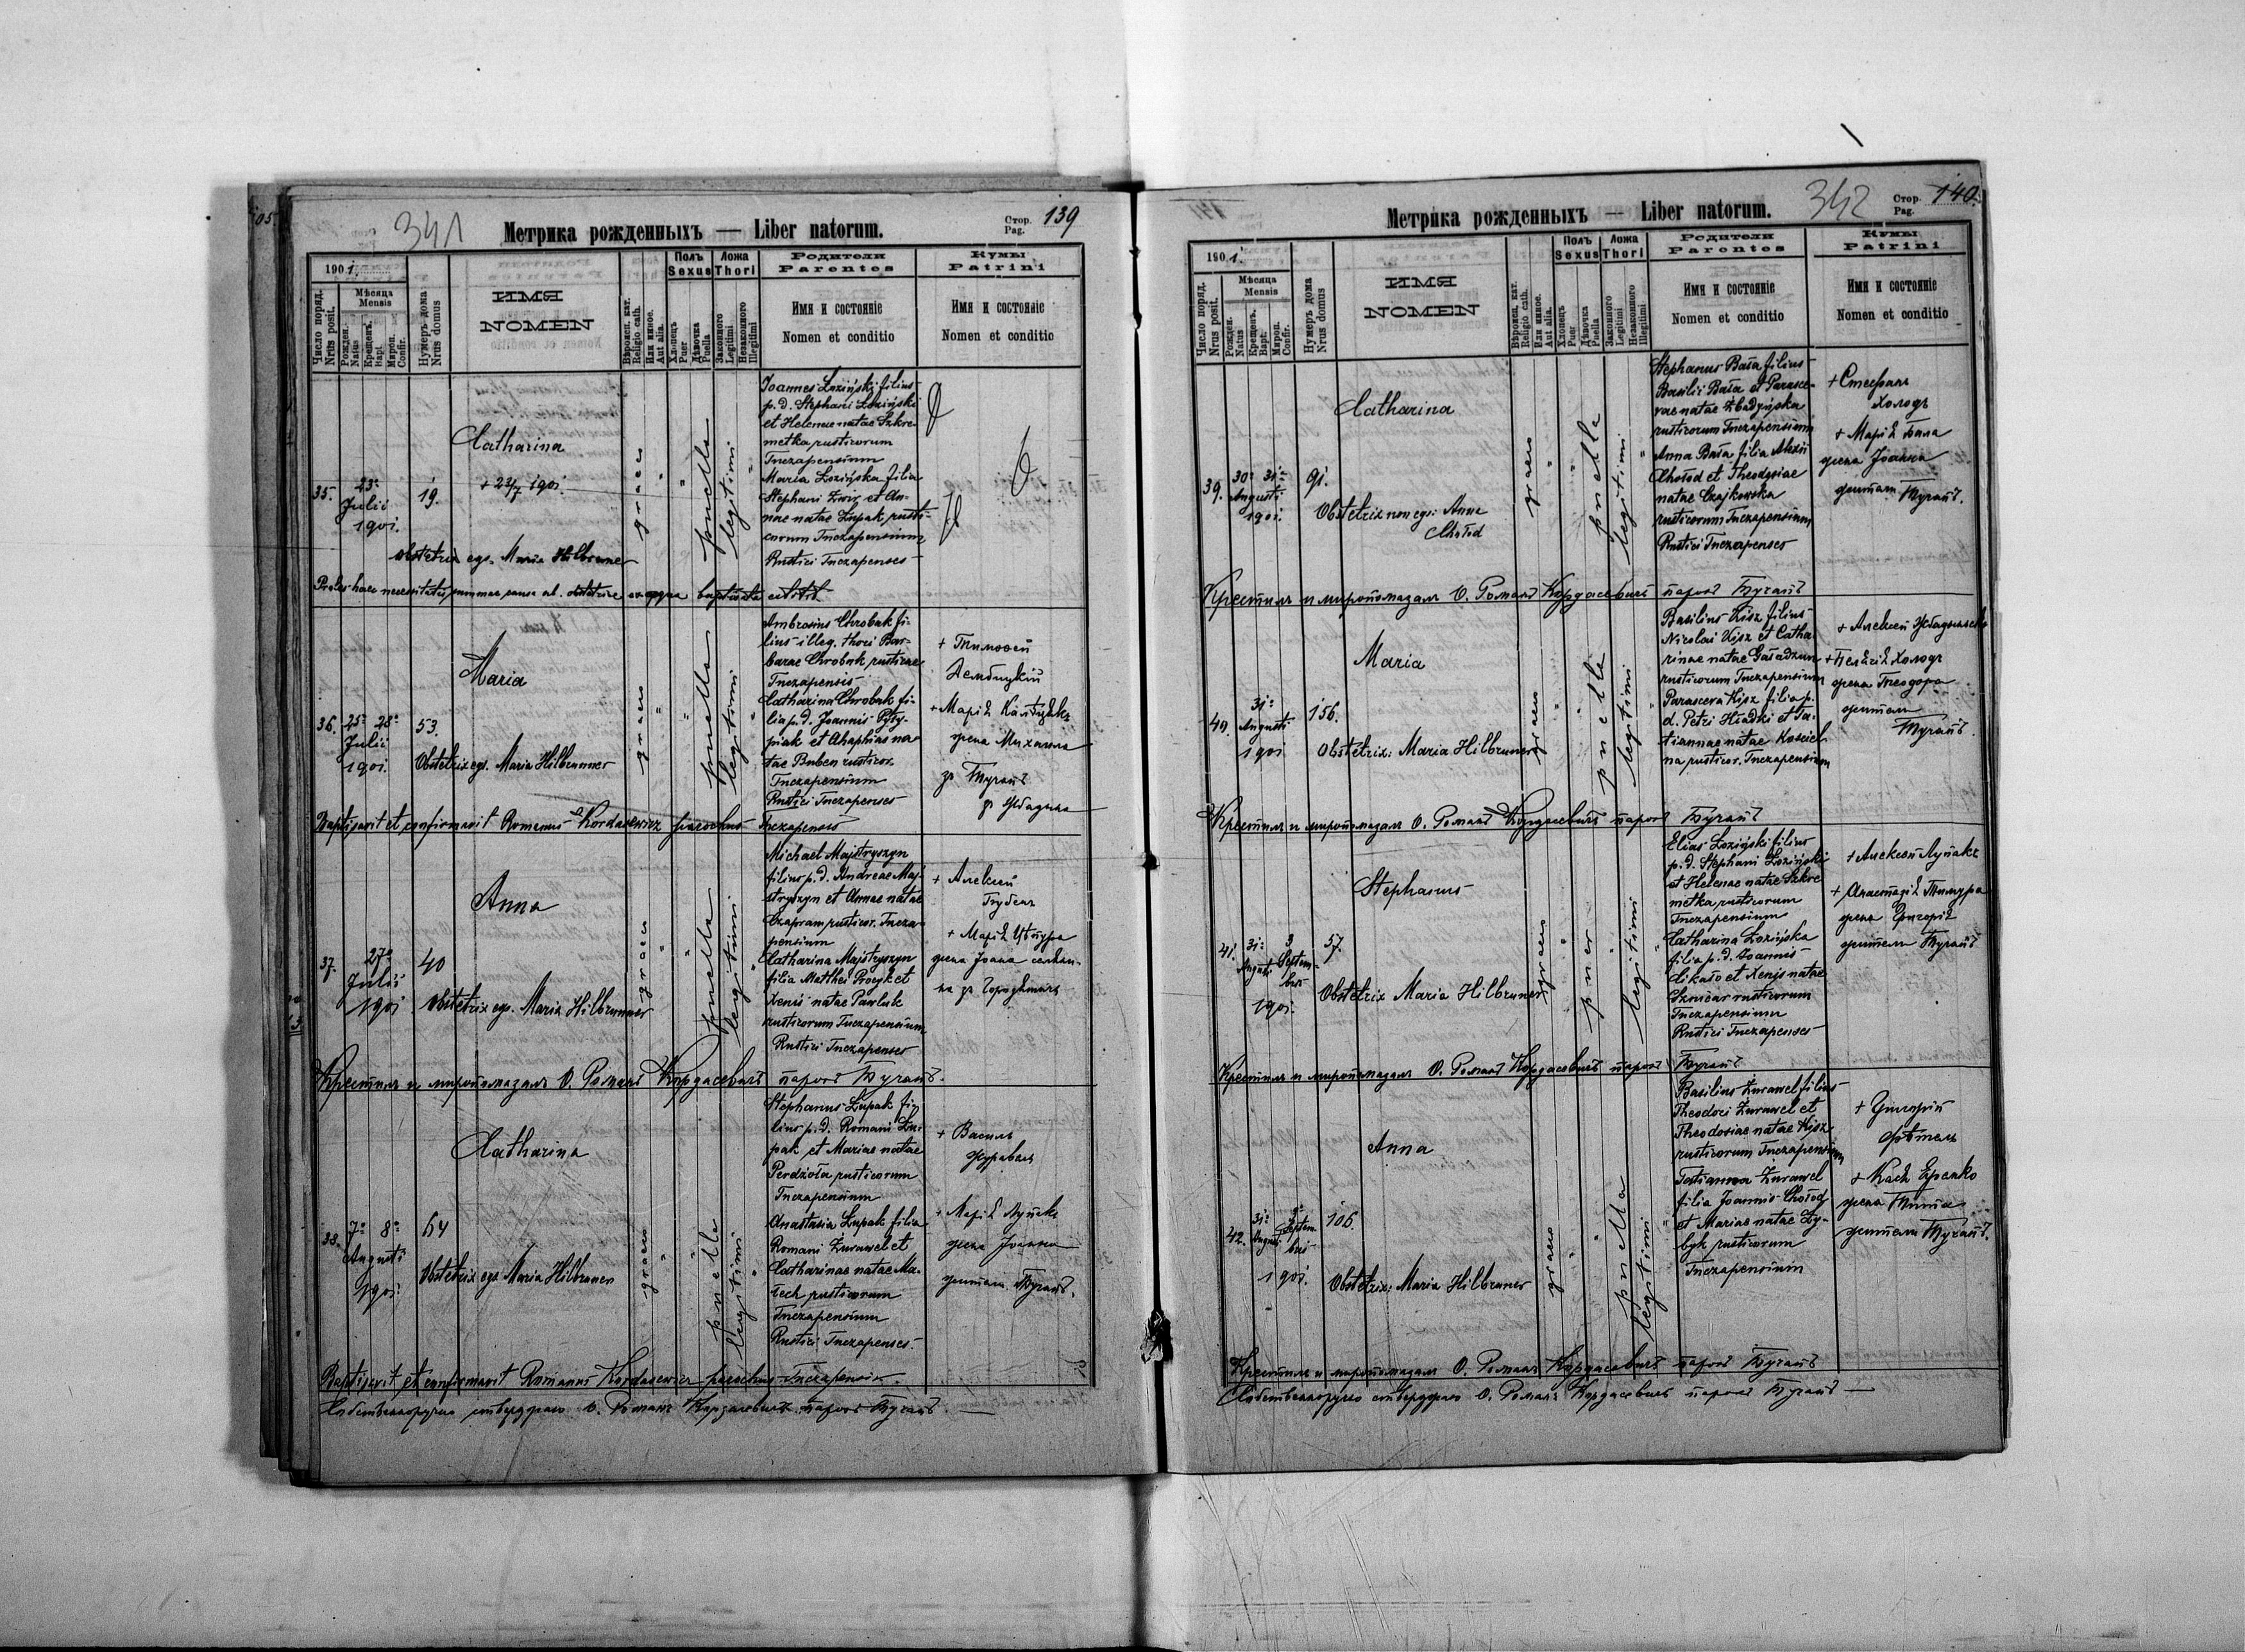 341
Метрика рожденныхъ — Liber natorum.
Стор. Pag. 139
1901.
Число поряд. Nrus posit.
Мѣсяца Mensis
Рожден. Natus
Крещенъ. Bapt.
Миров. Confir.
Нумеръ дома Nrus domus
ИМЯ
NOMEN
Вѣроисп. кат. Religio cath.
Или инное. Aut alia.
Полъ Sexus
Хлопецъ Puer
Дѣвочка Puella
Ложа Thori
Законного Legitimi
Незаконного Illegitimi
Родители
Parentes
Имя и состояніе
Nomen et conditio
Кумы
Patrini
Имя и состояніе
Nomen et conditio
35.
23a
Julii
1901.
19.
Catharina
+ 23/7 1901.
obstetrix egs. Maria Hilbruner
graeco
puella
legitimi
Joannes Łoziński filius
p. d. Stephani Łoziński
et Helenae natae Szkre-
metka rusticorum
Tuczapensium
Maria Łozińska filia
Stephani Zwir et An-
nae natae Łupak rusti-
corum Tuczapensium
Rustici Tuczapenses
Proles haec necessitatis summae causa ab obstetrice baptisata
36.
25a 28a
Julii
1901.
53.
Maria
Obstetrix egs. Maria Hilbrunner
graeco
puella
legitimi
Ambrosius Chrobak fi-
lius illeg. thori Bar-
barae Chrobak rusticae
Tuczapensis
Catharina Chrobak fi-
lia p. d. Joannis Pyty-
piak et Ahaphias na-
tae Buben rusticor.
Tuczapensium
Rustici Tuczapenses
+ Тимофей
Дембицкій
+ Марія
жена Михаила
зъ Тучапъ
Baptisavit et confirmavit Romanus Kordasewicz parochus Tuczapensis
37.
27a
Julii
1901
40
Anna
obstetrix egs. Maria Hilbrunner
graeco
puella
legitimi
Michael Majstryszyn
filius p. d. Andreae Maj-
stryszyn et Annae natae
Czapram rusticor. Tucza-
pensium
Catharina Majstryszyn
filia Matthei Procyk et
Xenis natae Pawluk
rusticorum Tuczapensium
Rustici Tuczapenses
+ Алексей
Бубенъ
+ Марія
жена Іоана
Крестилъ и миропомазалъ О. Романъ Кордасевичъ парохъ Тучапъ.
38.
7a 8a
Augusti
1901.
64
Catharina
Obstetrix egs Maria Hilbruner
graeco
puella
legitimi
Stephanus Łupak fi-
lius p. d. Romani Łu-
pak et Mariae natae
Perdżoła rusticorum
Tuczapensium
Anastasia Łupak filia
Romani Żurawel et
Catharinae natae Ma-
łech rusticorum
Tuczapensium
Rustici Tuczapenses.
+ Василь
Журавель
+ Марія Лупакъ
жена Іоанна
жители Тучапъ.
Baptisavit et confirmavit Romanus Kordasewicz parochus Tuczapensis.
Собственноручно стверджаю О. Романъ Кордасевичъ парохъ Тучапъ. —
342
Метрика рожденныхъ — Liber natorum.
Стор. Pag. 140.
1901.
Число поряд. Nrus posit.
Мѣсяца Mensis
Рожден. Natus
Крещенъ. Bapt.
Миров. Confir.
Нумеръ дома Nrus domus
ИМЯ
NOMEN
Вѣроисп. кат. Religio cath.
Или инное. Aut alia.
Полъ Sexus
Хлопецъ Puer
Дѣвочка Puella
Ложа Thori
Законного Legitimi
Незаконного Illegitimi
Родители
Parentes
Имя и состояніе
Nomen et conditio
Кумы
Patrini
Имя и состояніе
Nomen et conditio
39.
30a 31a
Augusti
1901.
91.
Catharina
Obstetrix non egs: Anna
Chołod
graeco
puella
legitimi
Stephanus Bała filius
Basilii Bała et Parasce-
vae natae Zbadyńska
rusticorum Tuczapensium
Anna Bała filia Alexii
Chołod et Theodosiae
natae Czajkowska
rusticorum Tuczapensium
Rustici Tuczapenses
+ Стефанъ
Холодъ
+ Марія Бала
жена Іоанна
жители Тучапъ.
Крестилъ и миропомазалъ О. Романъ Кордасевичъ парохъ Тучапъ
40.
31a
Augusti
1901
156.
Maria
Obstetrix: Maria Hilbruner
graeco
puella
legitimi
Basilius Kisz filius
Nicolai Kisz et Catha-
rinae natae Gaładzun
rusticorum Tuczapensium
Parasceva Kisz filia p.
d. Petri Hładki et Ta-
tiannae natae Kosciel-
na rusticor. Tuczapensium
+ Алексей
+ Пелагія Холодъ
жена Теодора
жители
Тучапъ.
Крестилъ и миропомазалъ О. Романъ Кордасевичъ парохъ Тучапъ
41.
31a 3
Augusti Septem-
bris
1901.
57.
Stephanus
Obstetrix Maria Hilbruner
graeco
puer
legitimi
Elias Łoziński filius
p. d. Stephani Łoziński
et Helenae natae Szkre-
metka rusticorum
Tuczapensium
Catharina Łozińska
filia p. d. Joannis
Cikało et Xenis natae
rusticorum
Tuczapensium
Rustici Tuczapenses
+ Алексей Лупакъ
+ Анастазія
жена Григорія
жители Тучапъ
Крестилъ и миропомазалъ О. Романъ Кордасевичъ парохъ Тучапъ
42.
31a
Augusti Septem-
bris
1901.
106.
Anna
Obstetrix: Maria Hilbruner
graeco
puella
legitimi
Basilius Żurawel filius
Theodori Żurawel et
Theodosiae natae Kisz
rusticorum Tuczapensium
Tatianna Żurawel
filia Joannis Chołod
et Mariae natae Dy-
byk rusticorum
Tuczapensium
+ Григорій
+
жена
жители Тучапъ.
Крестилъ и миропомазалъ О. Романъ Кордасевичъ парохъ Тучапъ
Собственноручно стверджаю О. Романъ Кордасевичъ парохъ Тучапъ —